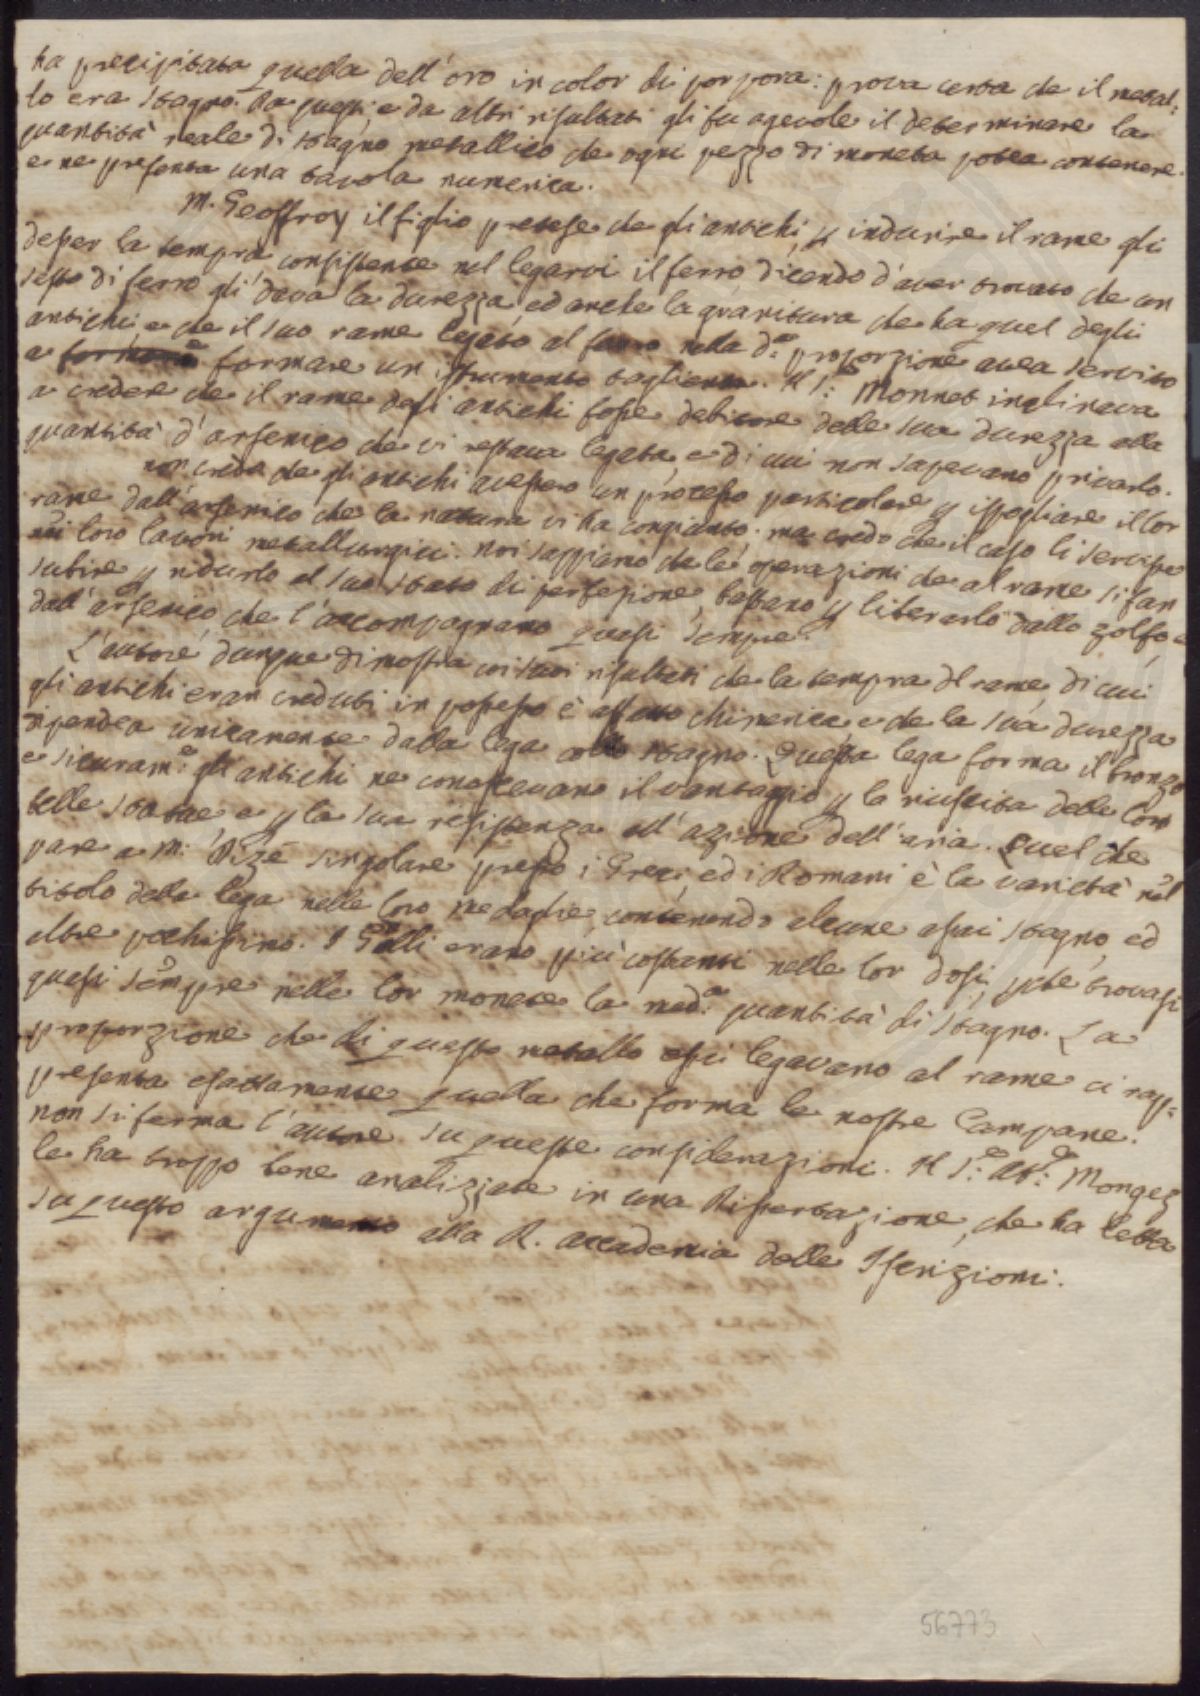 ha precipitata quella dell'oro in color di porpora: prova certa che il metal:
lo era stagno. Da questi, e da altri risultati gli fu agevole il determinare la
quantità reale di stagno metallico che ogni pezzo di moneta potea contenere.
e ne presenta una tavola numerica.
M. Geoffroy il figlio pretese che gli antichi, p indurire il rame gli
desser la tempra consistente nel legarvi il ferro, dicendo d'aver trovato che un
sesto di ferro gli dava la durezza, ed anche la granitura che ha quel degli
antichi e che il suo rame legato al ferro nella d.ª proporzione avea servito
a formare un istrumento tagliente. Il S.r Monnet inclinava
a creder che il rame degli antichi fosse debitore della sua durezza alla
quantità d'arsenico che vi restava legata, e di cui non sapevano privarlo.
non credo che gli antichi avessero un processo particolare p ispogliare il lor
rame dall'arsenico che la natura vi ha congiunto. ma credo che il caso li servisse
nei loro lavori metallurgici. noi sappiamo che le operazioni che al rame si fan
subire p ridurlo al suo stato di perfezione, bastano p liberarlo dallo zolfo e
dall'arsenico che l'accompagnano quasi sempre.
L'autore dunque dimostra coi suoi risultati che la tempra del rame, di cui
gli antichi eran creduti in possesso è affatto chimerica e che la sua durezza
dipendea unicamente dalla lega collo stagno. Questa lega forma il bronzo
e sicuram.e gli antichi ne conoscevano il vantaggio p la riuscita delle loro
belle statue e p la sua resistenza all'azione dell'aria. Quel che
pare a M. Dizé singolare presso i Greci, ed i Romani è la varietà nel
titolo della lega nelle loro medaglie, contenendo alcune assai stagno, ed
altre pochissimo. I Galli erano più costanti nelle lor dosi, pchè trovasi
quasi sempre nelle lor monete la med.ª quantità di stagno. La
proporzione che di questo metallo essi legavano al rame ci rap:
presenta esattamente quella che forma le nostre Campane.
non si ferma l'autore su queste considerazioni. Il S.r Ab.e Mongez
le ha troppo bene analizzate in una Dissertazione, che ha letta
su questo argumento alla R. accademia delle Iscrizioni.
56773